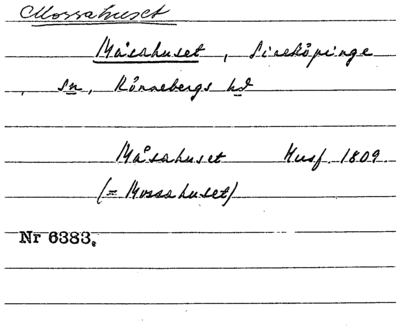 Mossahuset
Måsahuset, Sireköpinge
, sn, Rönnebergs hd
Måsahuset Husf 1809.
(= Mossahuset)
Nr 6383.